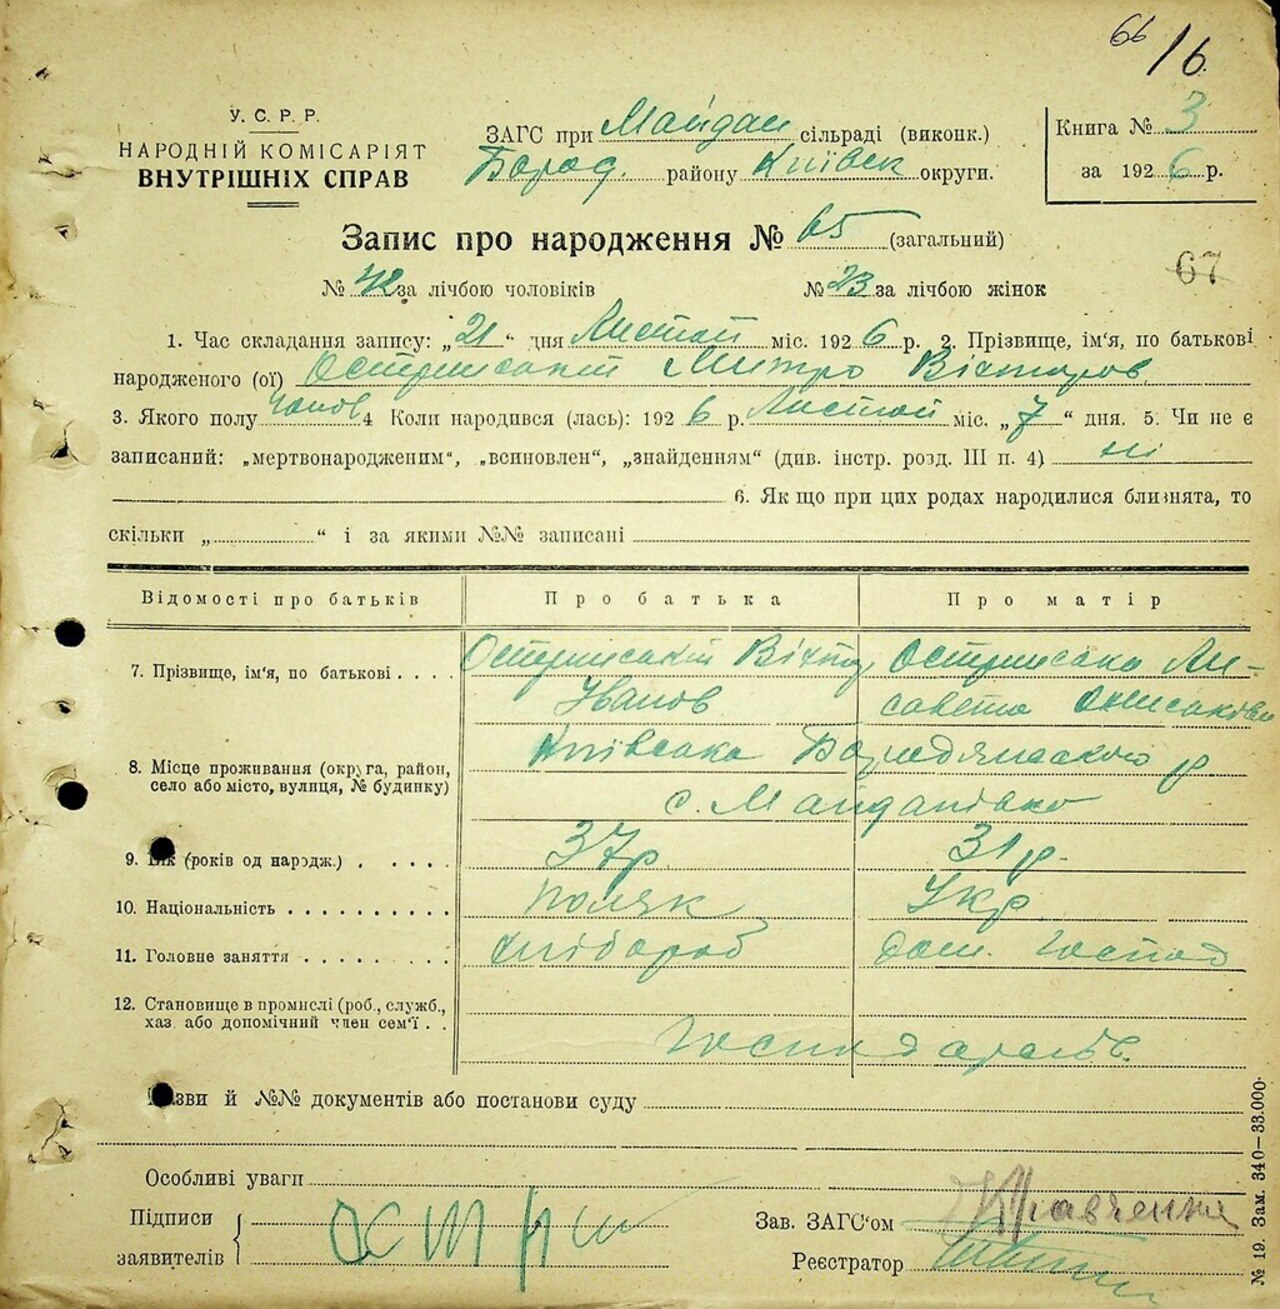 66 16
У. С. Р. Р.
НАРОДНІЙ КОМІСАРІЯТ
ВНУТРІШНІХ СПРАВ
ЗАГС при Майдан сільраді (виконк.)
Бород. району Київськ округи.
Книга № 3
за 1926 р.
Запис про народження № 65 (загальний)
67
№ 42 за лічбою чоловіків № 23 за лічбою жінок
1. Час складання запису: „21“ дня Листоп міс. 1926 р. 2. Прізвище, ім'я, по батькові
народженого (ої) Остринський Митро Вікторов
3. Якого полу чолов 4 Коли народився (лась): 1926 р. Листоп міс. „7“ дня. 5. Чи не є
записаний: „мертвонародженим“, „всиновлен“, „знайденням“ (див. інстр. розд. III п. 4) ні
6. Як що при цих родах народилися близнята, то
скільки „ “ і за якими №№ записані
Відомості про батьків Про батька Про матір
7. Прізвище, ім'я, по батькові . . . . Остринський Віктор Остринська Ли-
Іванов савета
8. Місце проживання (округа, район, село або місто, вулиця, № будинку) Київська Бородянського р
с. Майданівка
9. Вік (років од нарэдж.) . . . . . 37 р. 31 р.
10. Національність . . . . . . . . . . поляк Укр
11. Головне заняття . . . . . . . . . хлібороб дом. господ
12. Становище в промислі (роб., служб.,
хаз. або допомічний член сем'ї . .
Назви й №№ документів або постанови суду
Особливі уваги
Підписи
заявителів
Зав. ЗАГС'ом Кравченко
Реєстратор
№ 19. Зам. 340—33.000.